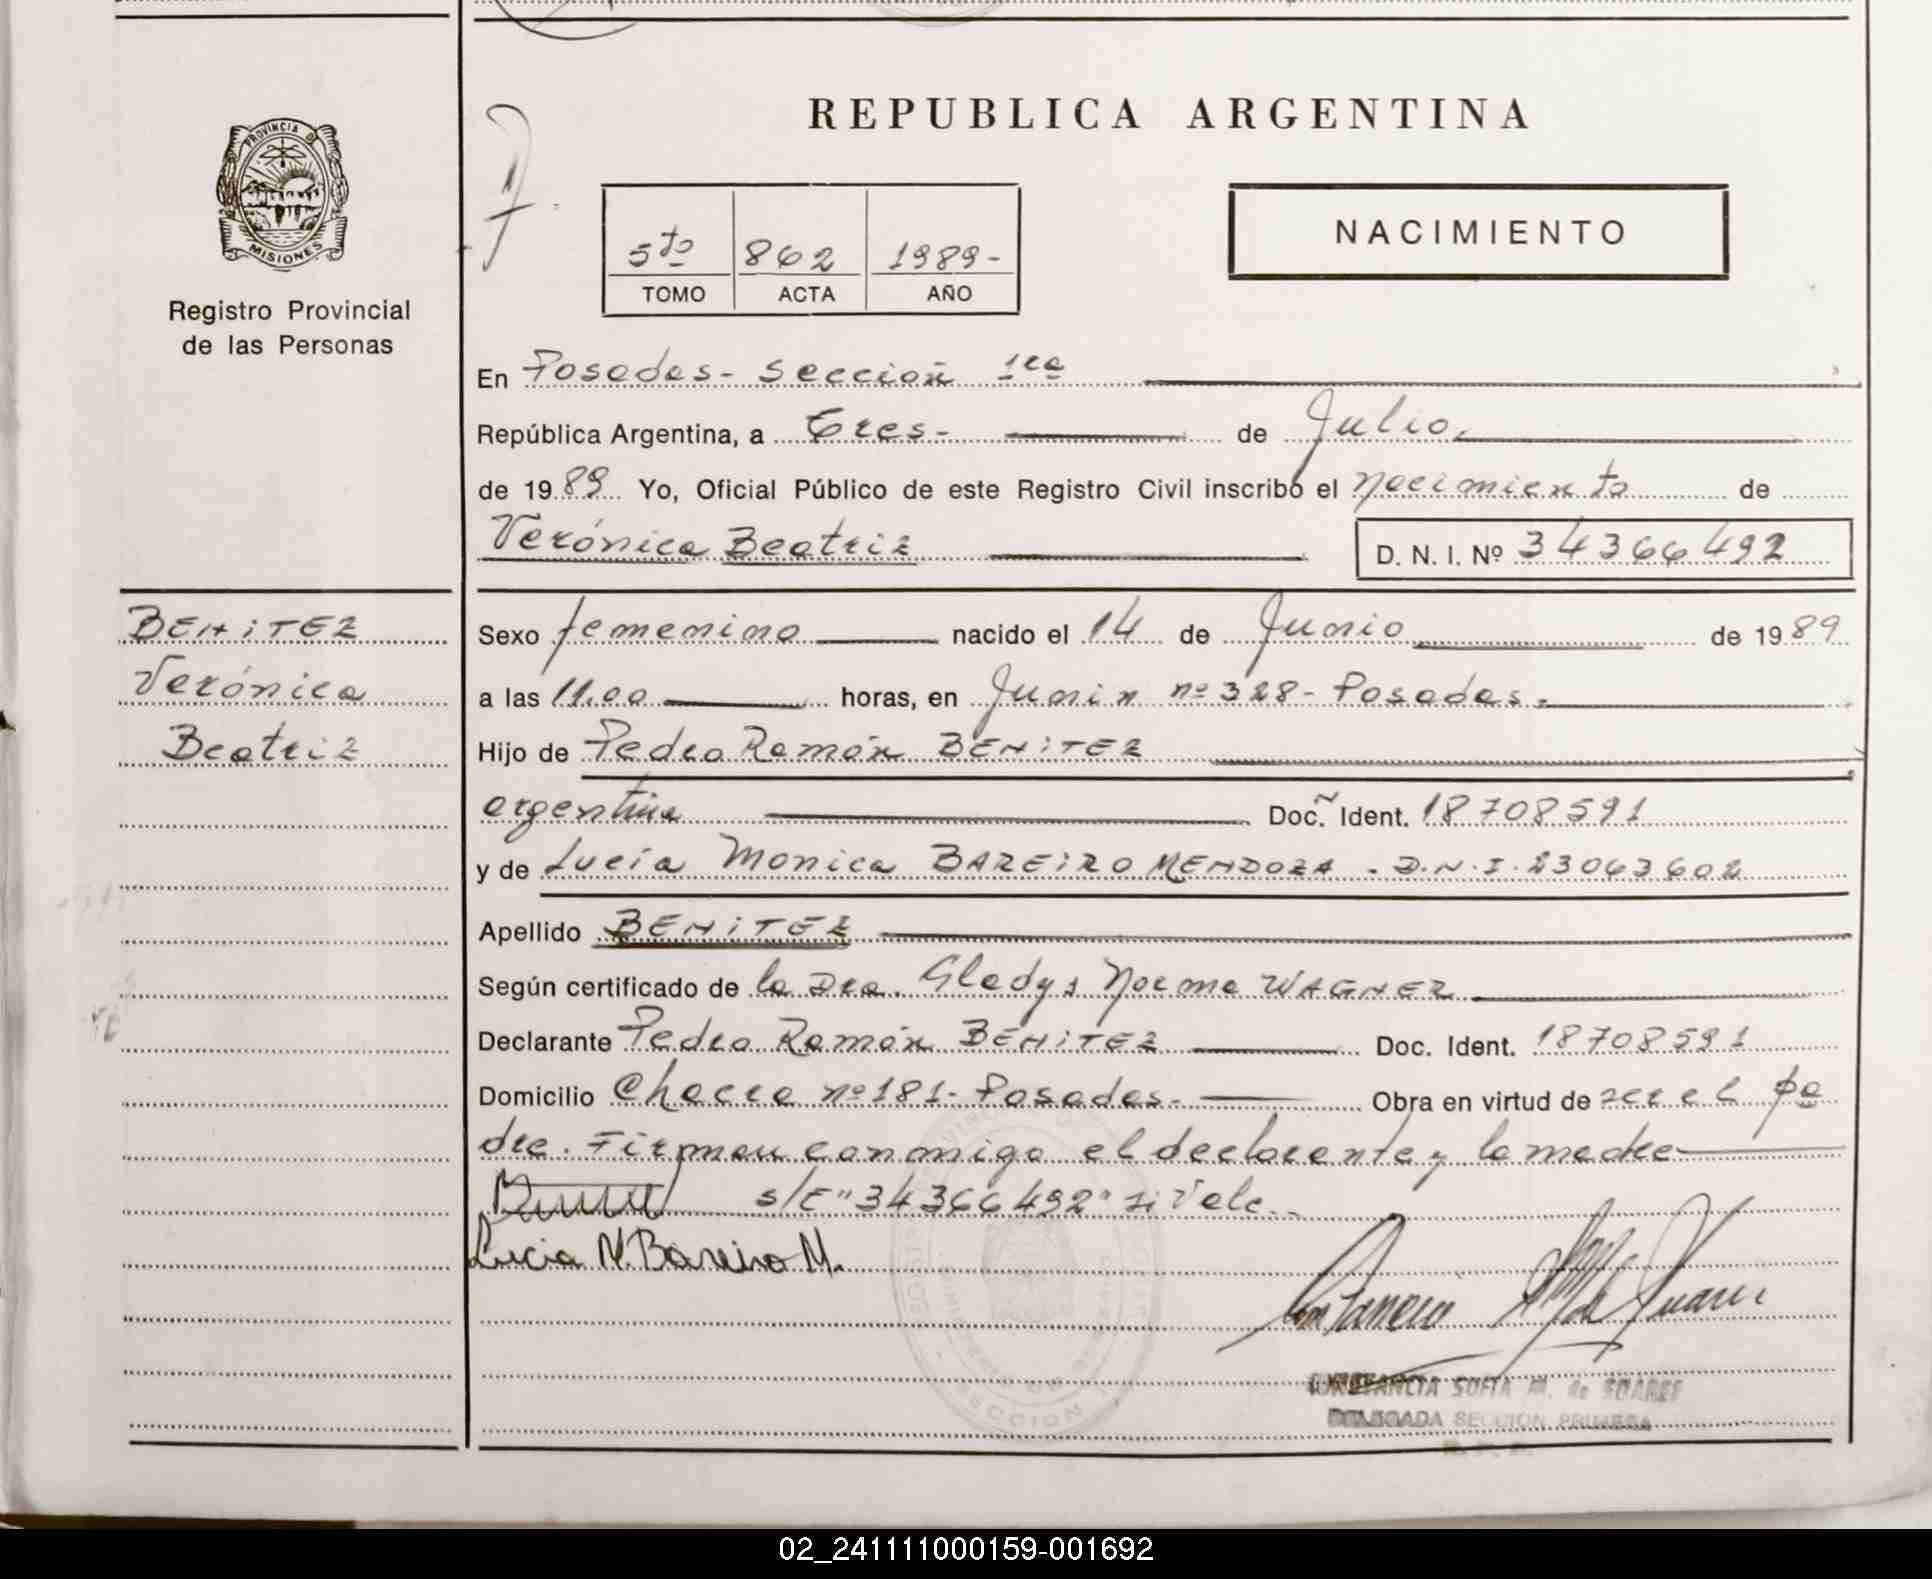 REPUBLICA ARGENTINA
PROVINCIA DE
MISIONES
Registro Provincial
de las Personas
NACIMIENTO
5to 862 1989-
TOMO ACTA AÑO
En Posadas- Sección 1ra
República Argentina, a tres- de Julio,
de 1989 Yo, Oficial Público de este Registro Civil inscribo el nacimiento de
Verónica Beatriz D. N. I. Nº 34366492
BENITEZ
Verónica
Beatriz
Sexo femenino nacido el 14 de Junio de 1989
a las 11.00 horas, en Junin nº 328- Posadas.
Hijo de Pedro Ramón BENITEZ
argentina Doc. Ident. 18708591
y de Lucía Monica BAREIRO MENDOZA . D.N.I. 23063602
Apellido BENITEZ
Según certificado de la Dra. Gladys Norma WAGNER
Declarante Pedro Ramón BENITEZ Doc. Ident. 18708591
Domicilio Chacra nº 181- Posadas- Obra en virtud de ser el pa
dre. Firman conmigo el declarante y la madre
s/E "34366492" si Vale.
Lucia M. Bareiro M.
CONSTANCIA SOFIA M. de SOARES
DELEGADA SECCION PRIMERA
02_241111000159-001692